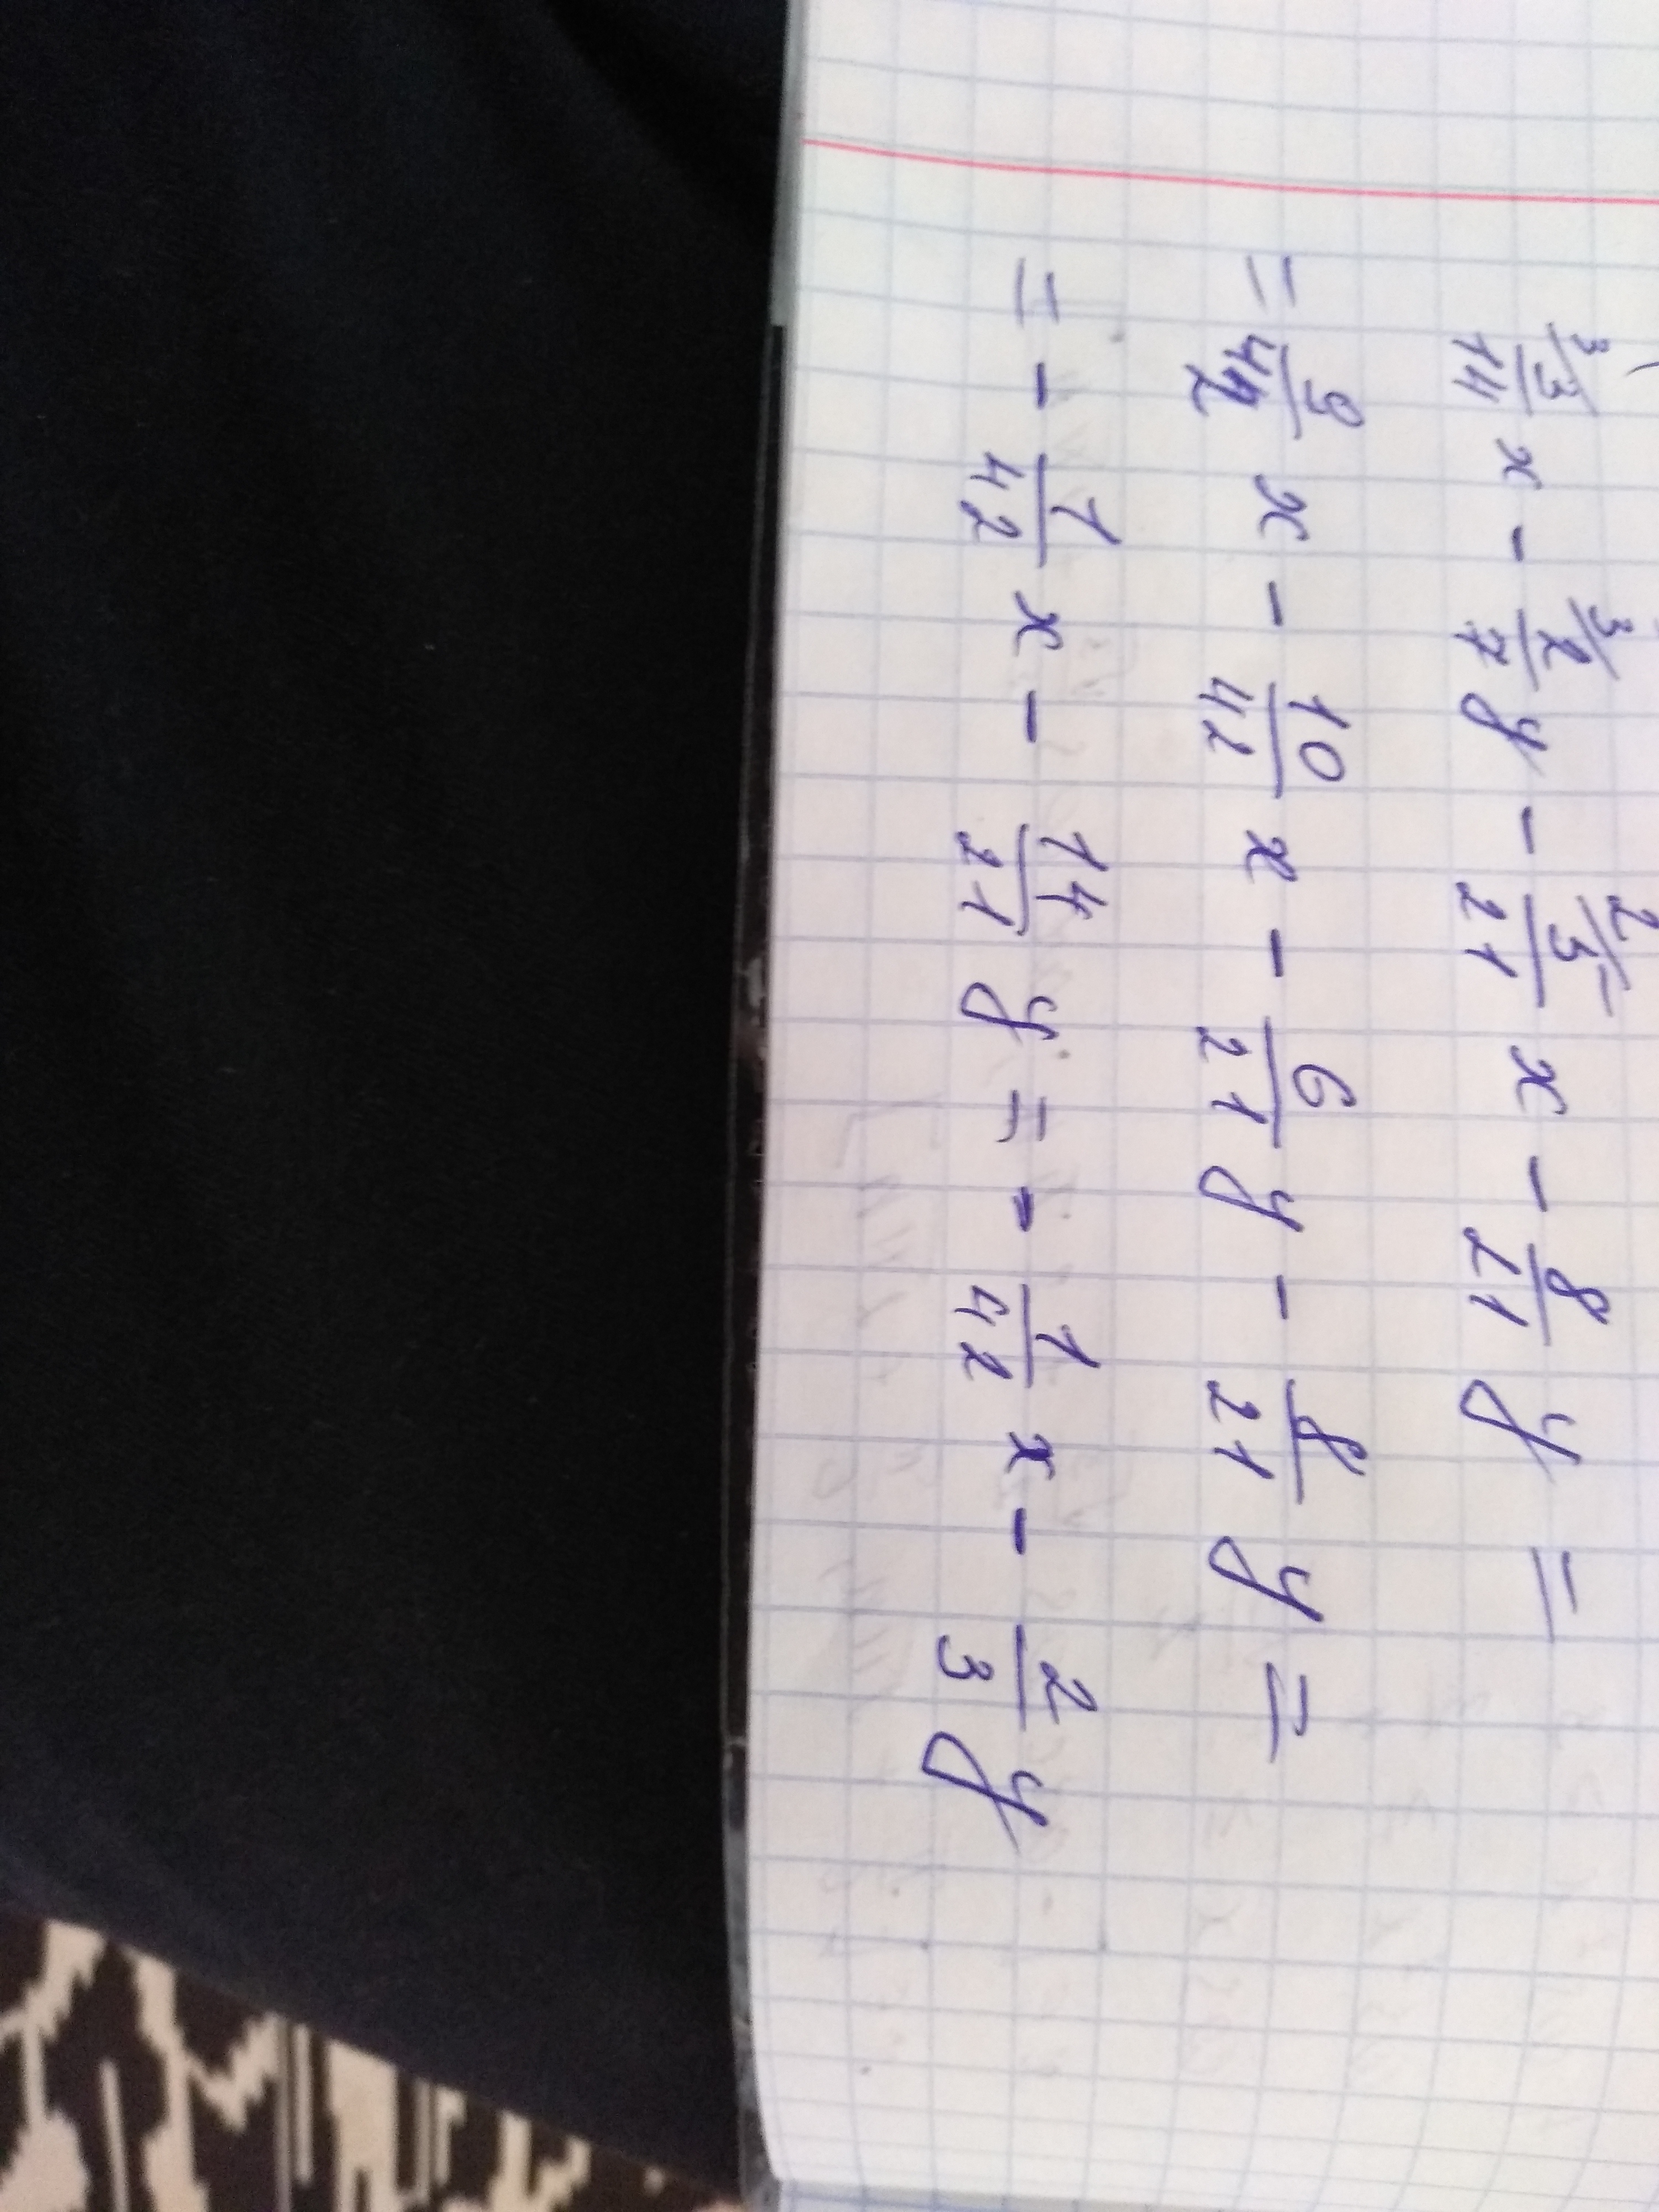 3/ 3/14 x - 3/ 2/7 y - 2/ 5/21 x - 8/21 y =
= 9/42 x - 10/42 x - 6/21 y - 8/21 y =
= - 1/42 x - 14/21 y = - 1/42 x - 2/3 y